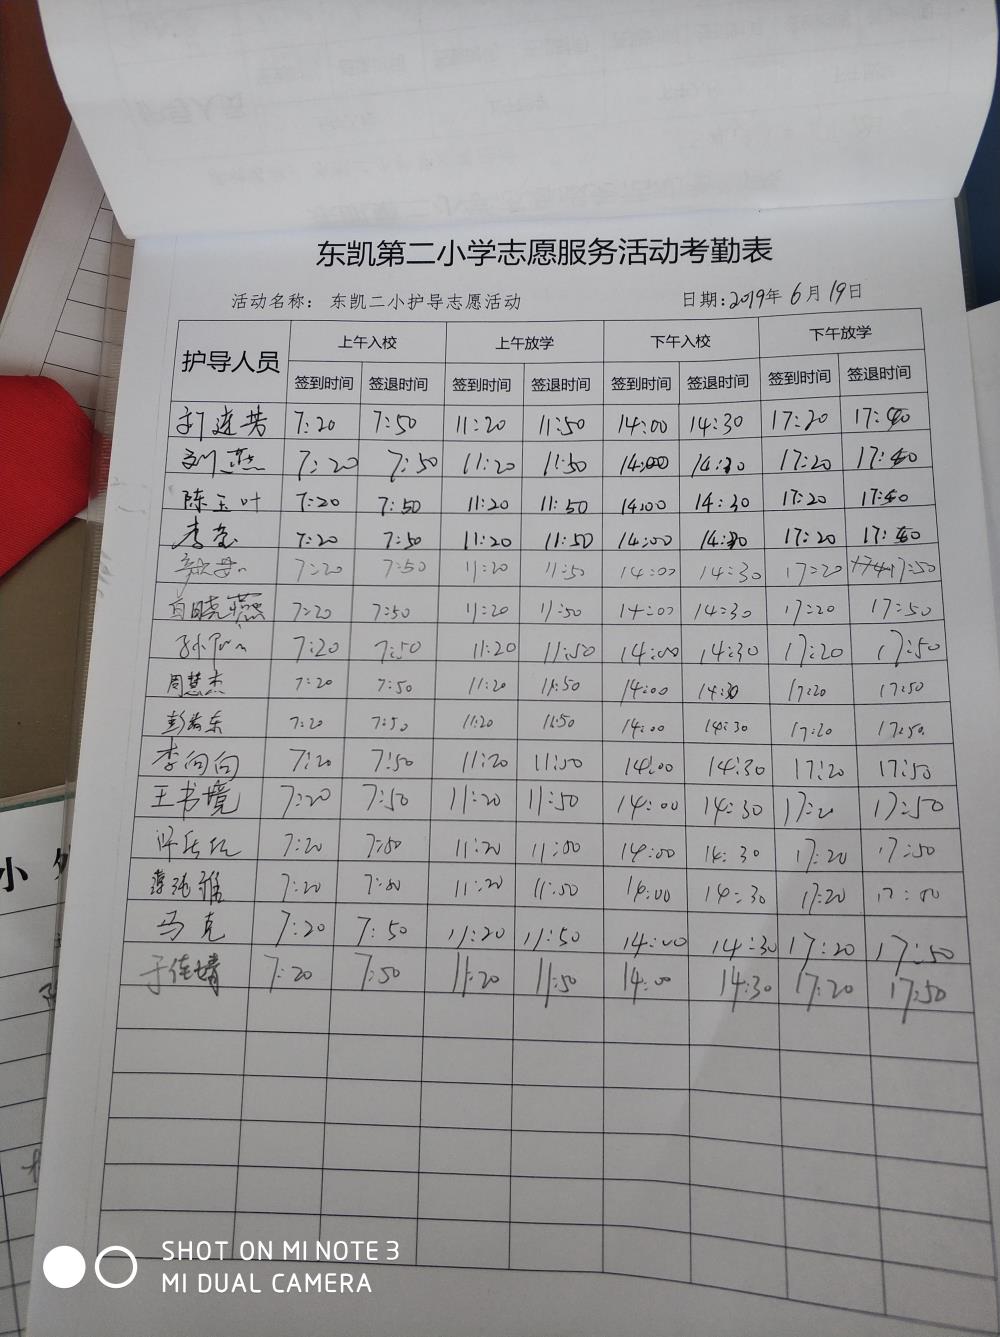 东凯第二小学志愿服务活动考勤表
活动名称： 东凯二小护导志愿活动 日期:2019年 6月 19日
护导人员 上午入校 上午放学 下午入校 下午放学
签到时间 签退时间 签到时间 签退时间 签到时间 签退时间 签到时间 签退时间
7:20 7:50 11:20 11:50 14:00 14:30 17:20 17:40
刘燕 7:20 7:50 11:20 11:50 14:00 14:30 17:20 17:40
陈玉叶 7:20 7:50 11:20 11:50 14:00 14:30 17:20 17:40
7:20 7:50 11:20 11:50 14:00 14:30 17:20 17:40
7:20 7:50 11:20 11:50 14:00 14:30 17:20 17:50
白晓燕 7:20 7:50 11:20 11:50 14:00 14:30 17:20 17:50
7:20 7:50 11:20 11:50 14:00 14:30 17:20 17:50
周慧杰 7:20 7:50 11:20 11:50 14:00 14:30 17:20 17:50
7:20 7:50 11:20 11:50 14:00 14:30 17:20 17:50
李向向 7:20 7:50 11:20 11:50 14:00 14:30 17:20 17:50
王书境 7:20 7:50 11:20 11:50 14:00 14:30 17:20 17:50
7:20 7:50 11:20 11:50 14:00 14:30 17:20 17:50
7:20 7:50 11:20 11:50 14:00 14:30 17:20
马克 7:20 7:50 11:20 11:50 14:00 14:30 17:20 17:50
于佳靖 7:20 7:50 11:20 11:50 14:00 14:30 17:20 17:50
小
SHOT ON MI NOTE 3
MI DUAL CAMERA